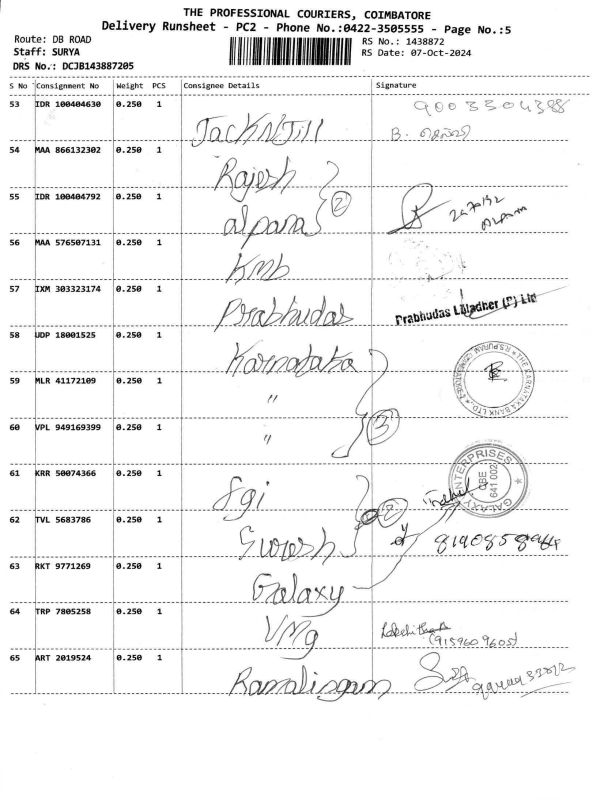 THE PROFESSIONAL COURIERS, COIMBATORE
Delivery Runsheet - PC2 - Phone No.:0422-3505555 - Page No.:5
Route: DB ROAD
RS No.: 1438872
Staff: SURYA
RS Date: 07-Oct-2024
DRS No.: DCJB143887205
S No Consignment No Weight PCS Consignee Details Signature
53 IDR 100404630 0.250 1 JackNJill 9003304388
B.
54 MAA 866132302 0.250 1 Rajesh
55 IDR 100404792 0.250 1 alpana 2
56 MAA 576507131 0.250 1 KMb
57 IXM 303323174 0.250 1 Prabhudas Prabhudas Liladher (P) Ltd
58 UDP 18001525 0.250 1 Karnataka
THE KARNATAKA BANK LTD. R.S.PURAM, COIMBATORE
59 MLR 41172109 0.250 1 "
60 VPL 949169399 0.250 1 " 3
61 KRR 50074366 0.250 1 Sgi
GALAXY ENTERPRISES CBE 641 002
62 TVL 5683786 0.250 1 Suresh 2
63 RKT 9771269 0.250 1 Galaxy
64 TRP 7805258 0.250 1 VMg
(9159609605)
65 ART 2019524 0.250 1 Ramalingam